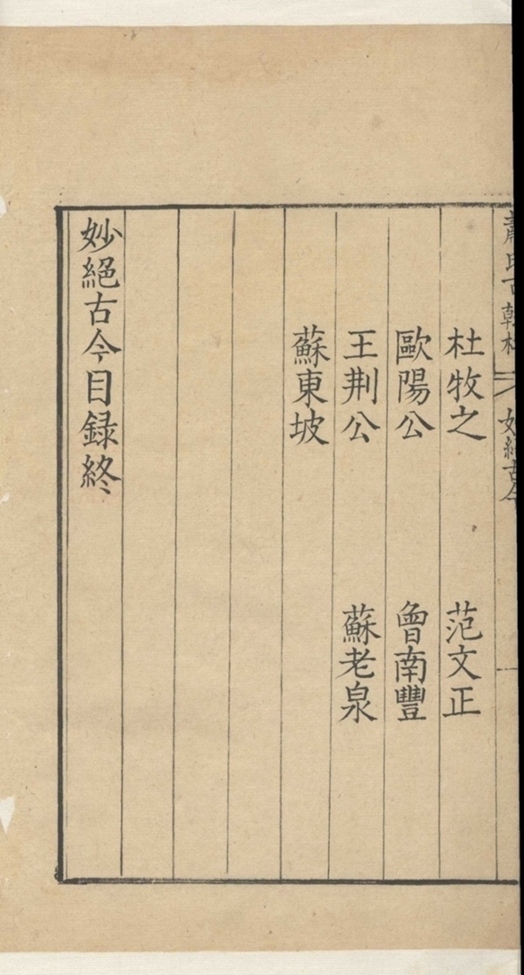 杜牧之 范文正
歐陽公 曾南豐
王荆公 蘇老泉
蘇東坡
妙絕古今目録終